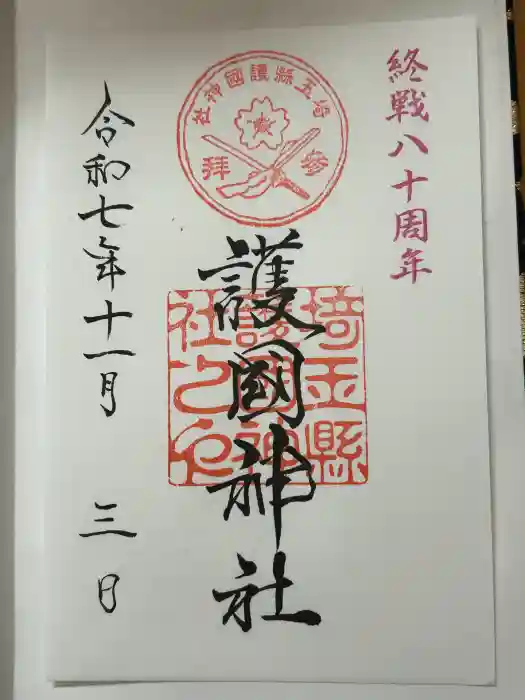 終戦八十周年
埼玉縣護國神社
參拜
護國神社
埼玉縣
護國神
社之印
令和七年十一月三日